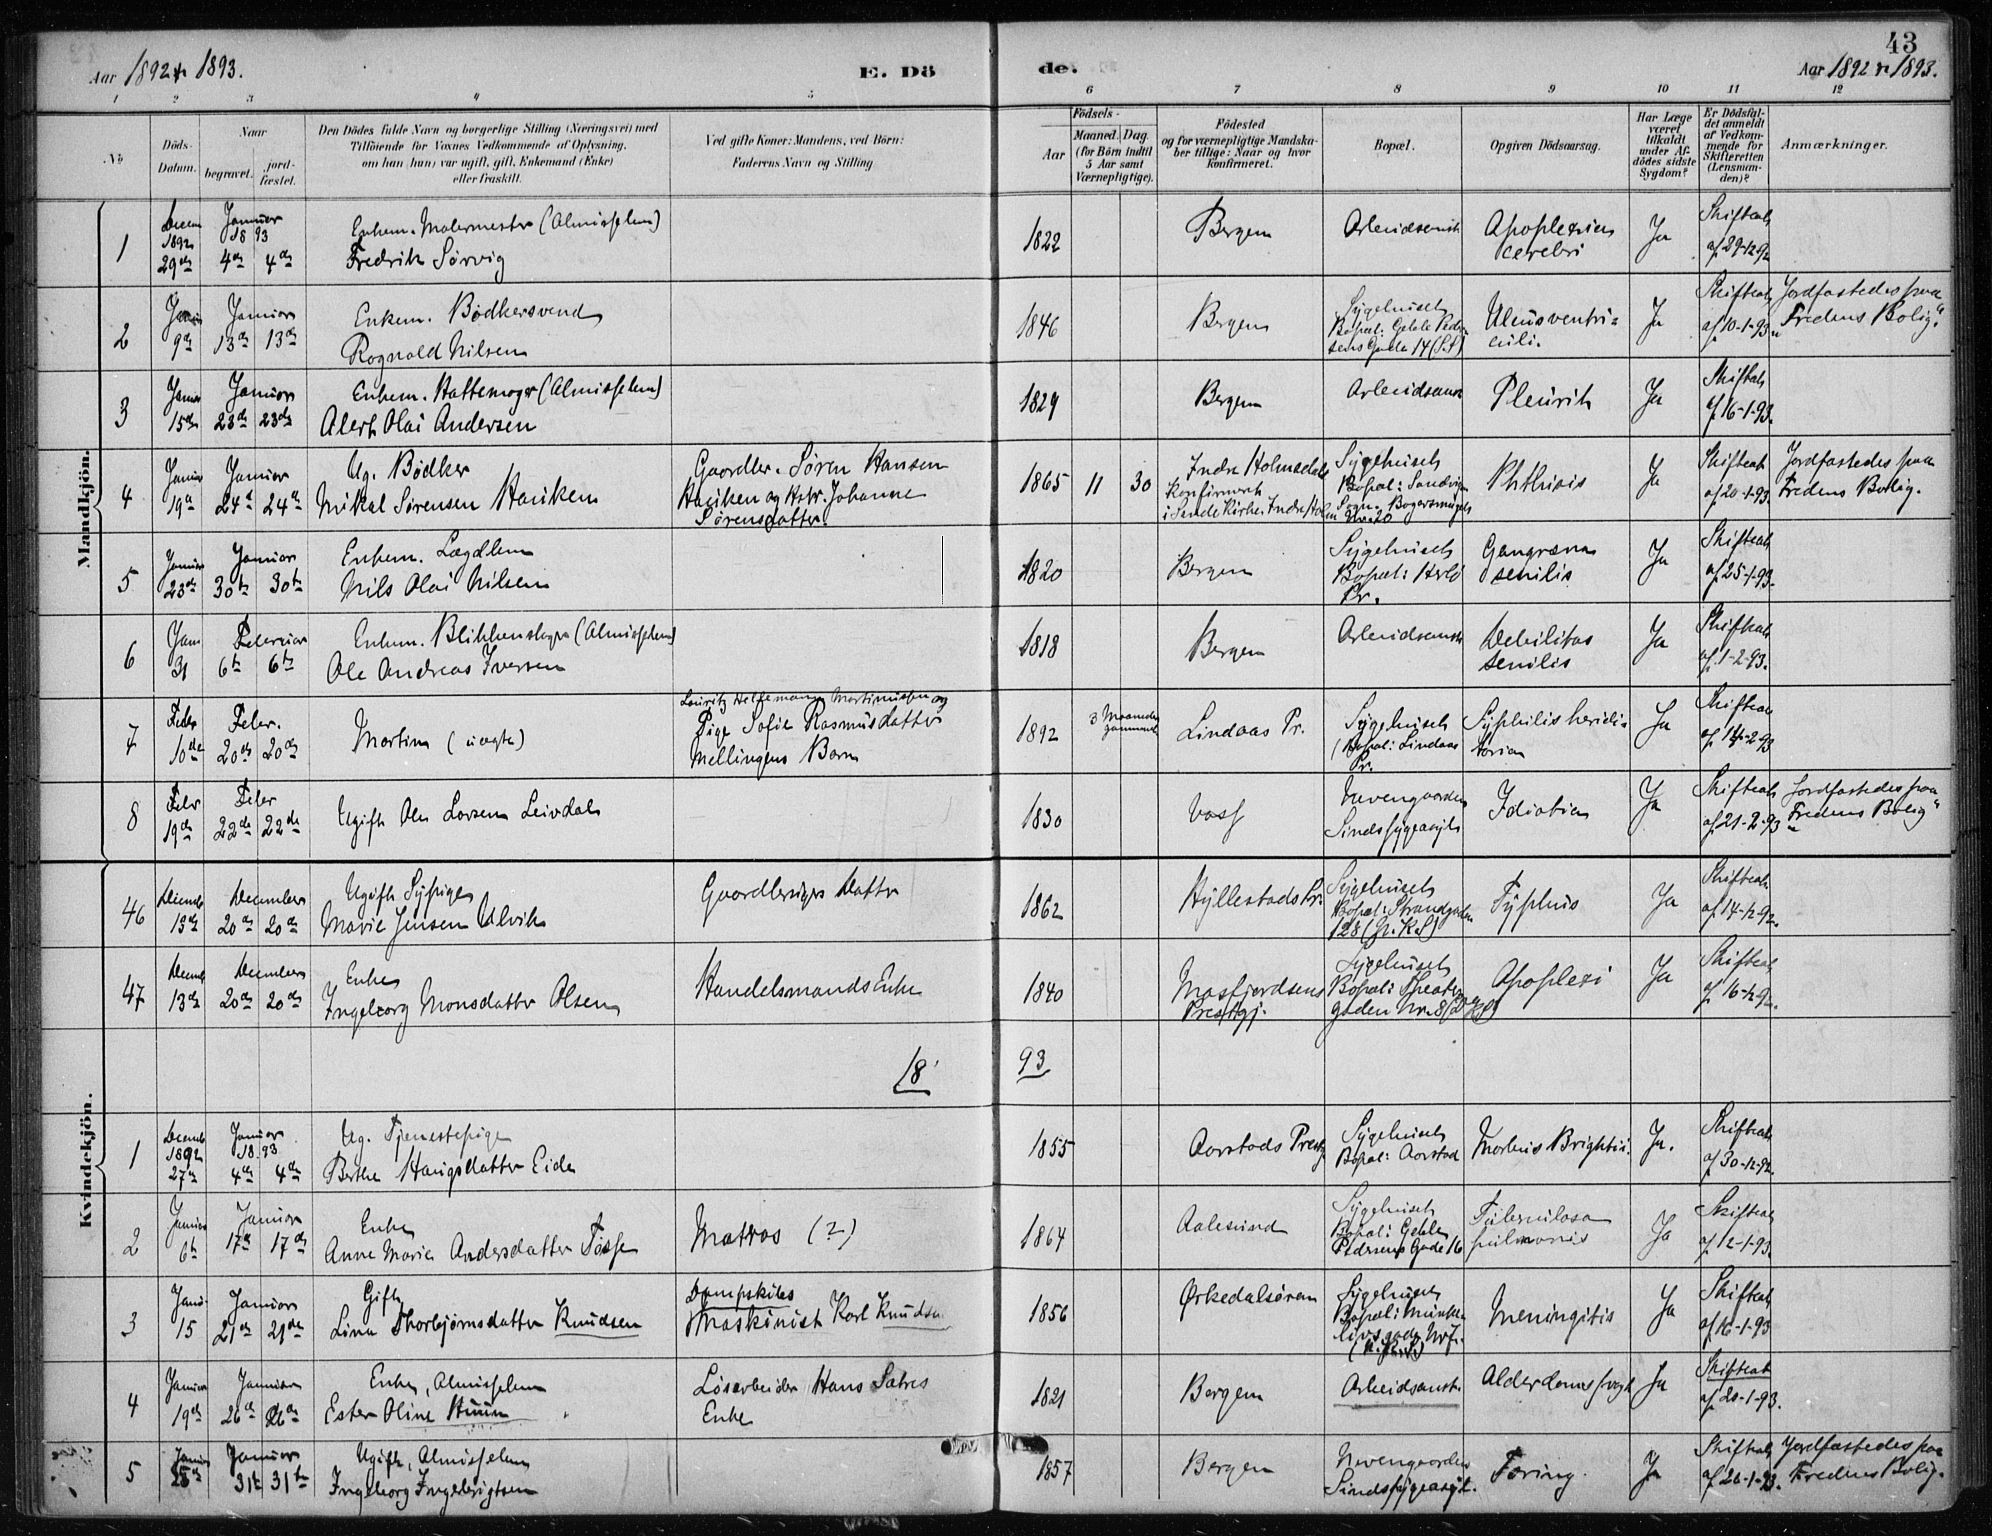 43
Aar 1892 & 1893.
E. Dö
de.
Aar 1892 & 1893.
1 2 3 4 5 6 7 8 9 10 11 12
No
Döds-Datum.
Naar
begravet.
jord-fæstet.
Den Dödes fulde Navn og borgerlige Stilling (Næringsvei) med
Tilföiende for Voxnes Vedkommende af Oplysning,
om han (hun) var ugift, gift, Enkemand (Enke)
eller fraskilt.
Ved gifte Koner: Mandens, ved Börn:
Faderens Navn og Stilling
Födsels-
Aar
Maaned. Dag.
(for Börn indtil
5 Aar samt
Værnepligtige).
Födested
og for værnepligtige Mandska-
ber tillige: Naar og hvor
konfirmeret.
Bopæl.
Opgiven Dödsaarsag.
Har Læge
været
tilkaldt
under Af-
dödes sidste
Sygdom?
Er Dödsfal-
det anmeldt
af Vedkom-
mende for
Skifteretten
(Lensman-
den)?
Anmærkninger.
Mandkjön.
1
Decem 1892 29de
Januar 1893 4de 4de
Enkem. Malermester (Almisselem)
Fredrik Sörvig
1822
Bergen
Arbeidsanst
Apoplexia
cerebri
Ja
Skifteatt
af 29-12-92
2
9de
Januar 13de 13de
Enkem. Bödkersvend
Rognald Nilsen
1846
Bergen
Sygehuset
Bopæl: Geble Peder-
sens Gade 14
Ulcus ventri=
culi.
Ja
Skifteatt
af 10-1-93
Jordfæstedes paa
"Fredens Bolig."
3
15de
Januar 23de 23de
Enkem. Hattemager (Almisselem)
Alert Olai Andersen
1829
Bergen
Arbeidsanst
Pleurit
Ja
Skifteatt
af 16-1-93.
4
Januar 19de
Januar 24de 24de
Ug. Bödker
Mikal Sørensen Hauken
Gaardbr. Søren Hansen
Hauken og Hstr. Johanne
Sørensdatter.
1865 11 30
Indre Holmedal
Konfirmeret
i Sande Kirke, Indre Holm
Sygehuset
Bopæl: Sandvigen
No 20
Phthisis
Ja
Skifteatt
af 20-1-93
Jordfæstedes paa
Fredens Bolig.
5
Januar 23de
Januar 30te 30te
Enkem. Lægdlem
Nils Olai Nilsen
1820
Bergen
Sygehuset
Bopæl: Herlö
Pr.
Gangræna
senilis
Ja
Skifteatt
af 25-1-93.
6
Jan 31
Februar 6te 6te
Enkem. Blikkenslager (Almisselem)
Ole Andreas Iversen
1818
Bergen
Arbeidsanst
Debilitas
senilis
Ja
Skifteatt
af 1-2-93.
7
Febr 10de
Febr. 20de 20de
Martin (uægte)
Lauritz Martinussen og
Pige Sofie Rasmusdatter
Mellingens Barn
1892
3 Maaneder gammel
Lindaas Pr.
Sygehuset
(Bopæl: Lindaas
Pr.
Syphilis heridi-
taria
Ja
Skifteatt
af 14-2-93
8
Febr 19de
Febr 22de 22de
Ugift Ole Larsen Leivdal
1830
Voss
Nevengaarden
Sindssygeasyl
Idiotia
Ja
Skifteatt
af 21-2-93
Jordfæstedes paa
"Fredens Bolig"
Kvindekjön.
46
Decemb 13de
December 20de 20de
Ugift Sypige
Marie Jensen Ulvik
Gaardbrugers Datter
1862
Hyllestad Pr.
Sygehuset
Bopæl: Strandgaden
128
Typhus
Ja
Skifteatt
af 14-12-92.
47
Decemb 13de
December 20de 20de
Enke
Ingeborg Monsdatter Olsen
Handelsmands Enke
1840
Masfjordens
Prestgj.
Sygehuset
Bopæl: Theater-
gaden No. 8
Apoplexi
Ja
Skifteatt
af 16-12-92.
18 93
1
Decemb 1892 27de
Januar 1893 4de 4de
Ug. Tjenestepige
Berthe Haugsdatter Eide
1855
Aarstad Prestg
Sygehuset
Bopæl: Aarstad
Morbus Brightii.
Ja.
Skifteatt
af 30-12-92.
2
Januar 6te
Januar 17de 17de
Enke
Anne Marie Andersdatter Tosse
Matros (?)
1864
Aalesund
Sygehuset
Bopæl: Geble
Pedersens Gade 16
Tuberculosa
pulmonis
Ja
Skifteatt
af 12-1-93.
3
15
Januar 21de 21de
Gift
Lina Thorbjørnsdatter Knudsen
Dampskibs
Maskinist Karl Knudsen
1856
Ørkedalsören
Sygehuset
Bopæl: Munke-
livsgade
Meningitis
Ja
Skifteatt
af 16-1-93
4
Januar 19de
Januar 26de 26de
Enke, Almisselem
Ester Oline Huun
Løsarbeider Hans Satres
Enke
1821
Bergen
Arbeidsanst.
Alderdomssvagh
Ja
Skifteatt
af 20-1-93.
5
Januar 25de
Januar 31te 31te
Ugift, Almisselem
Ingeborg Ingebrigtsen
1857
Bergen
Nevengaarden
Sindssygeasyl.
Tæring.
Ja
Skifteatt
af 26-1-93.
Jordfæstedes paa
"Fredens Bolig.